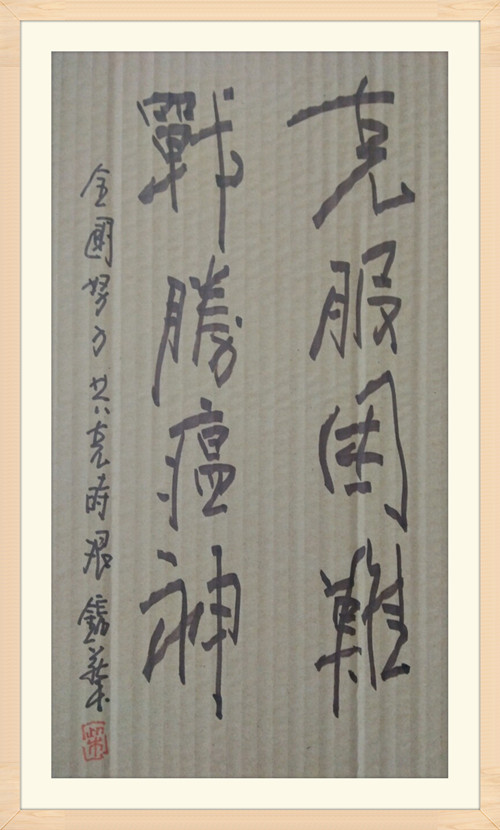 克服困難
戰勝瘟神
全國努力共克時艱